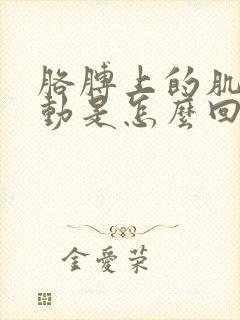 胳膊上的肌
動是怎麼回
金愛荣